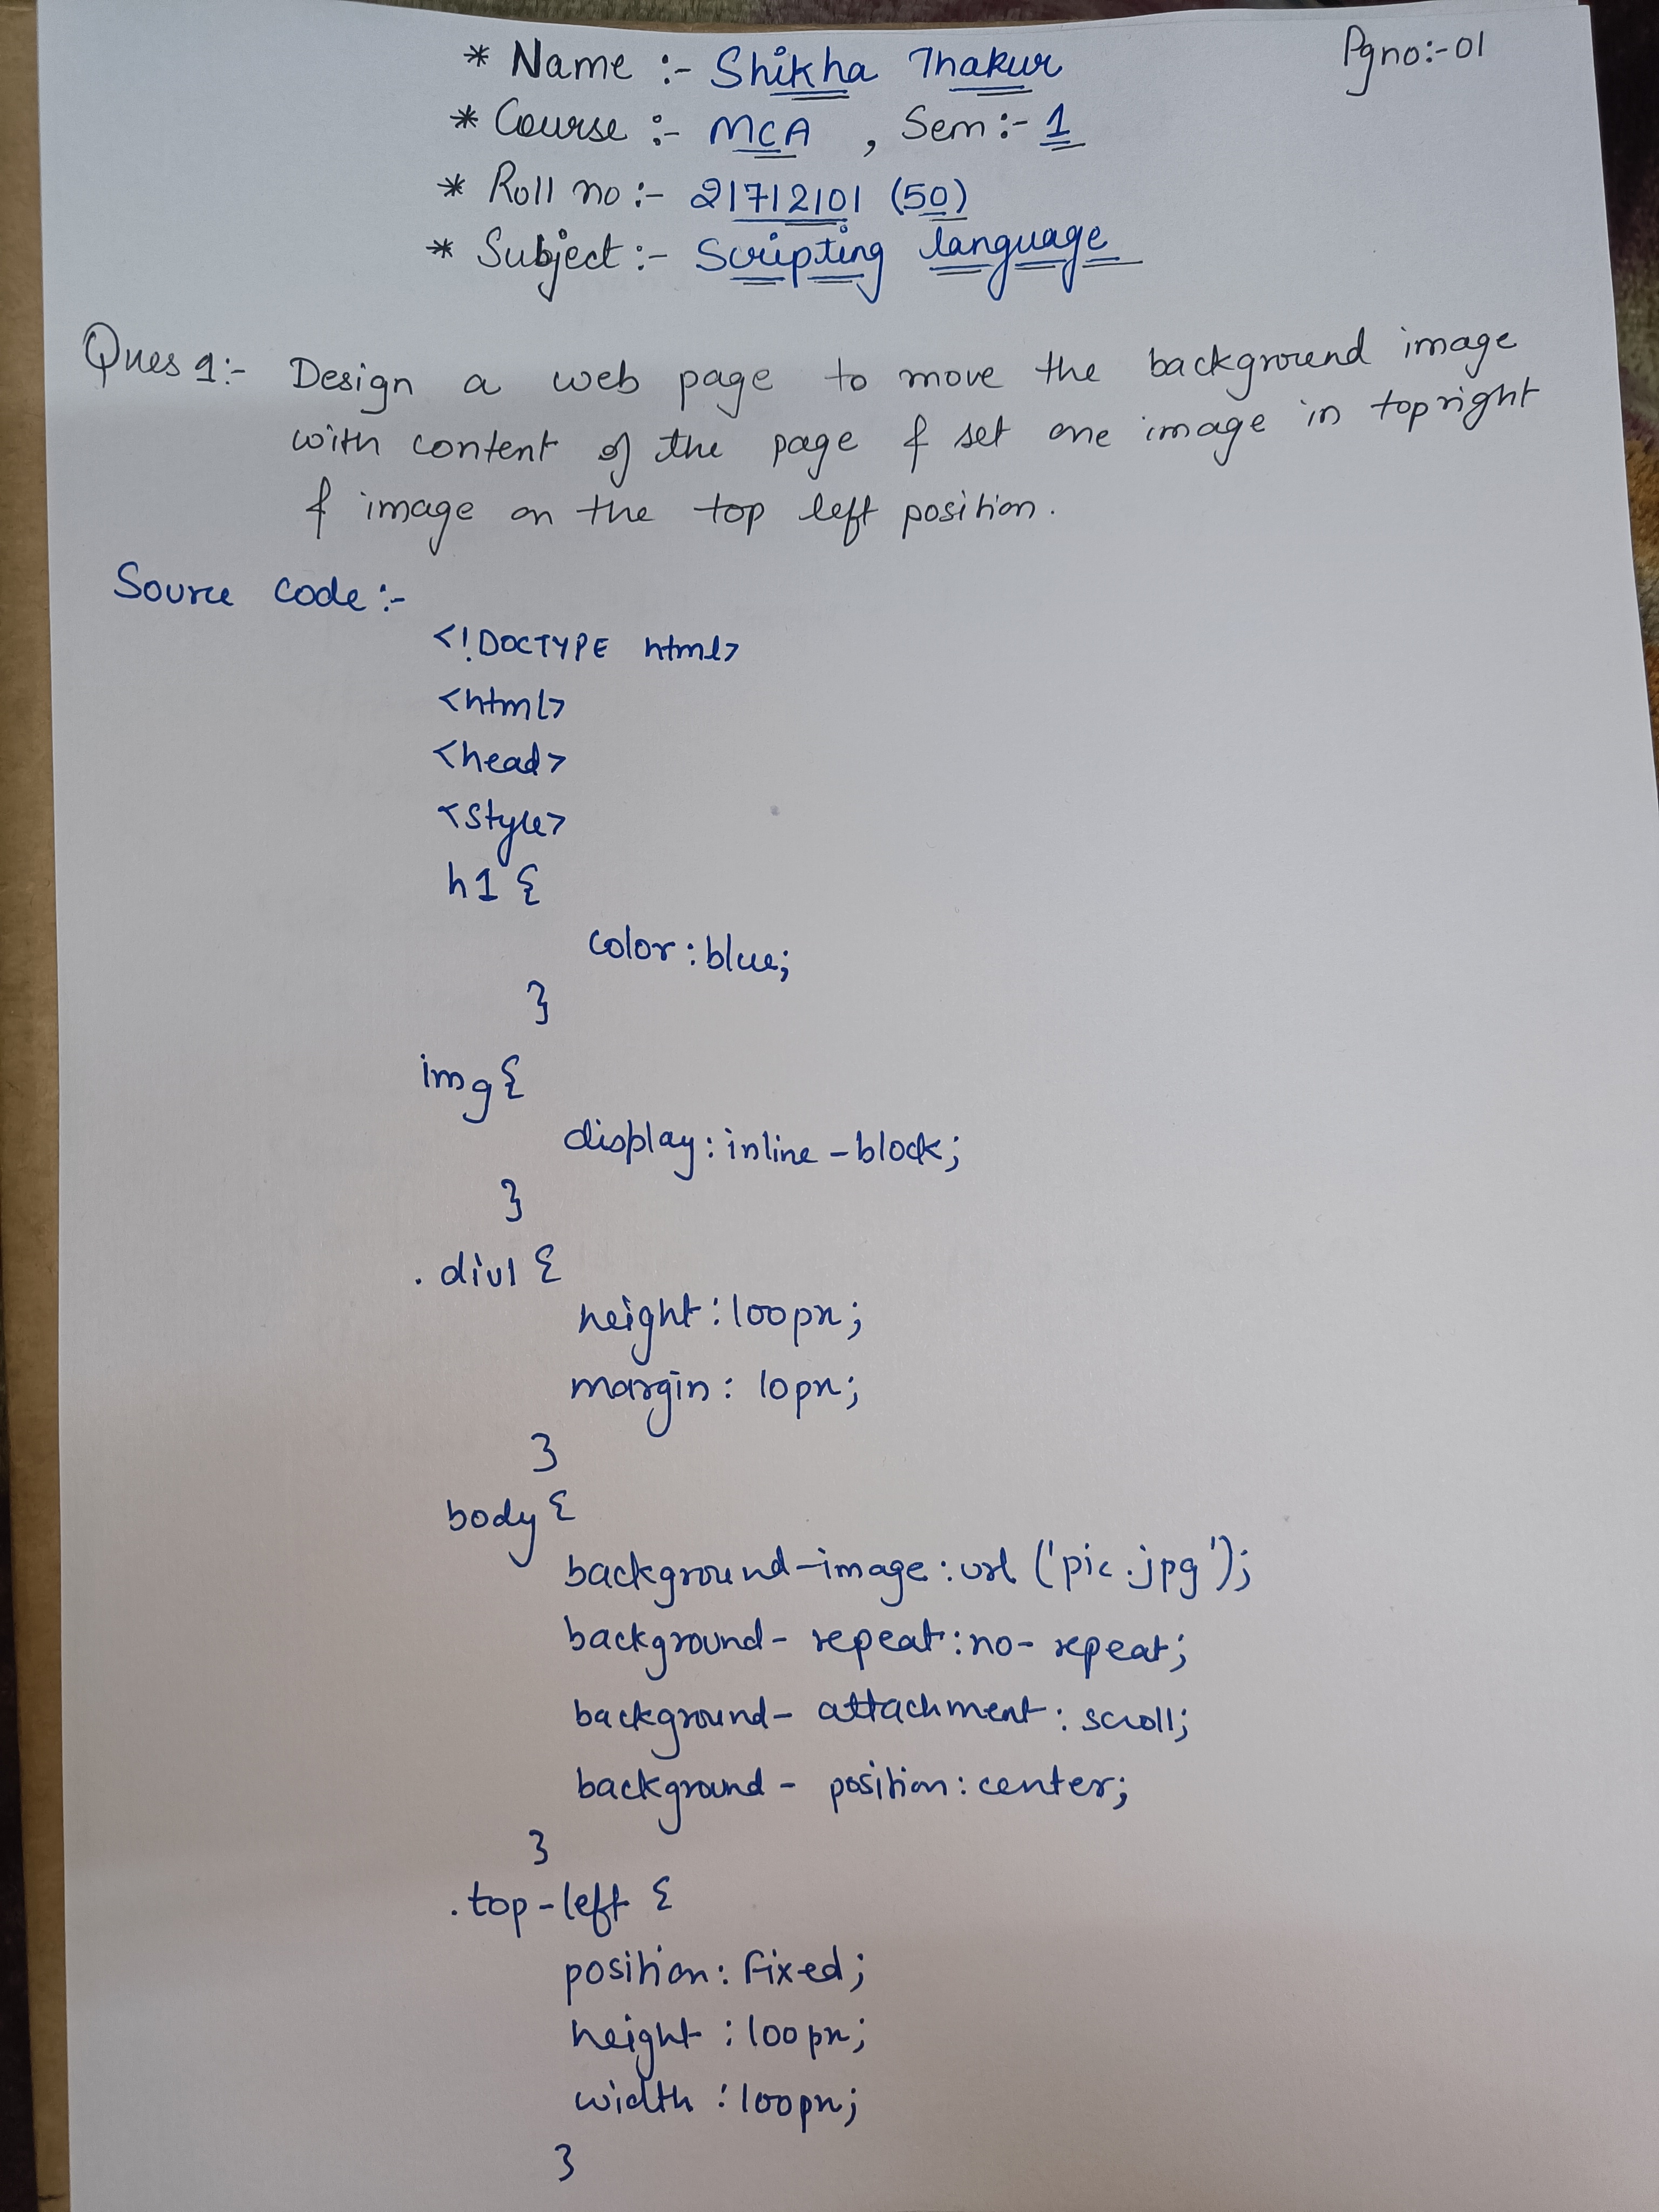 * Name :- Shikha Thakur
Pg no:-01
* Course :- MCA , Sem :- 1
* Roll no :- 21712101 (50)
* Subject :- Scripting language
Ques 1:- Design a web page to move the background image
with content of the page & set one image in top right
& image on the top left position.
Source code :-
<!DOCTYPE html>
<html>
<head>
<style>
h1 {
color : blue;
}
img {
display : inline-block;
}
.div1 {
height : 100px;
margin : 10px;
}
body {
background-image : url ('pic.jpg');
background-repeat : no-repeat;
background-attachment : scroll;
background-position : center;
}
.top-left {
position : fixed;
height : 100px;
width : 100px;
}